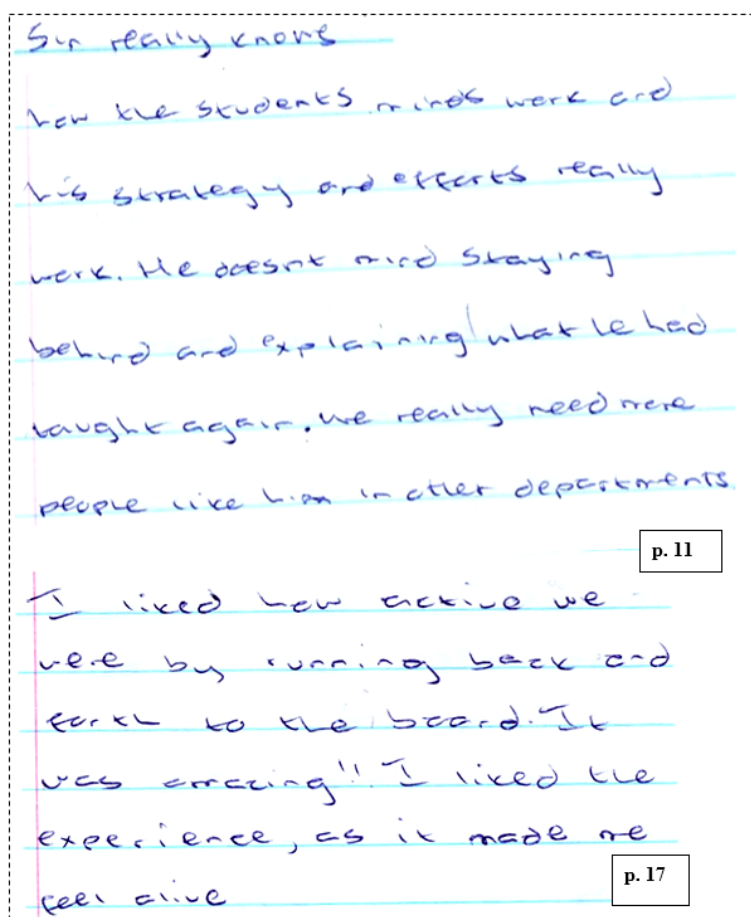 Sir really knows
how the students minds work and
his strategy and efforts really
work. He doesnt mind staying
behind and explaining what he had
taught again. We really need more
people like him in other departments
p. 11
I liked how active we
were by running back and
forth to the board. It
was amazing!! I liked the
experience, as it made me
feel alive
p. 17